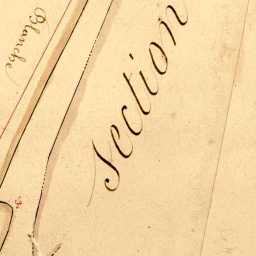 Blanche
section
3.